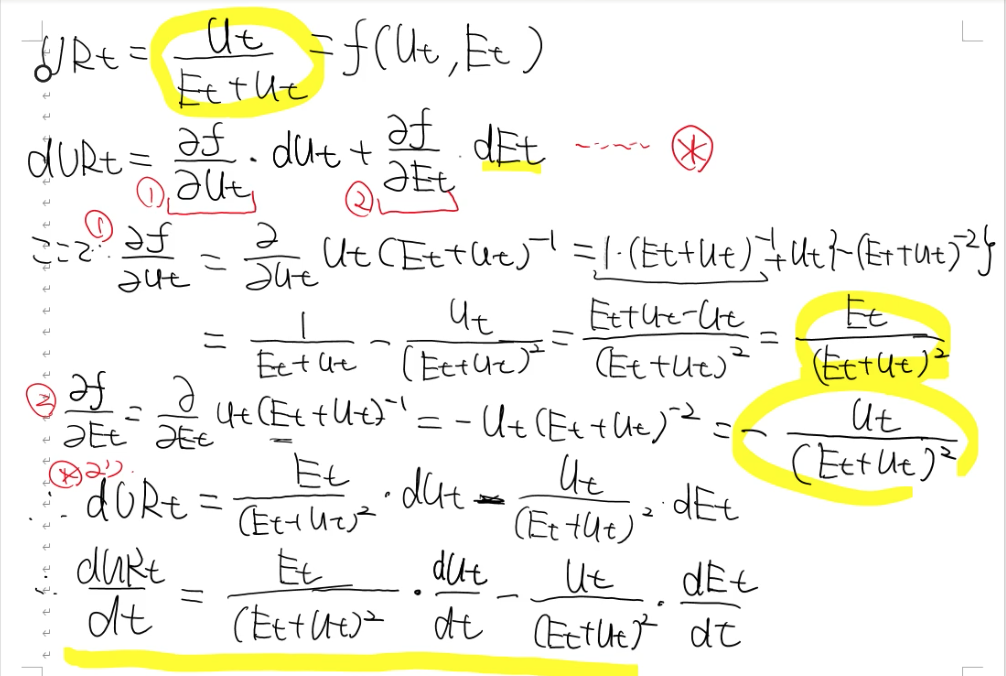 URt = Ut / (Et + Ut) = f(Ut, Et)
dURt = ∂f/∂Ut · dUt + ∂f/∂Et · dEt ------ ⊛
① ②
ここで ① ∂f/∂Ut = ∂/∂Ut Ut(Et+Ut)^-1 = 1·(Et+Ut)^-1 + Ut{-(Et+Ut)^-2}
= 1/(Et+Ut) - Ut/(Et+Ut)^2 = (Et+Ut-Ut)/(Et+Ut)^2 = Et/(Et+Ut)^2
② ∂f/∂Et = ∂/∂Et Ut(Et+Ut)^-1 = -Ut(Et+Ut)^-2 = - Ut/(Et+Ut)^2
⊛より
∴ dURt = Et/(Et+Ut)^2 · dUt - Ut/(Et+Ut)^2 · dEt
∴ dURt/dt = Et/(Et+Ut)^2 · dUt/dt - Ut/(Et+Ut)^2 · dEt/dt